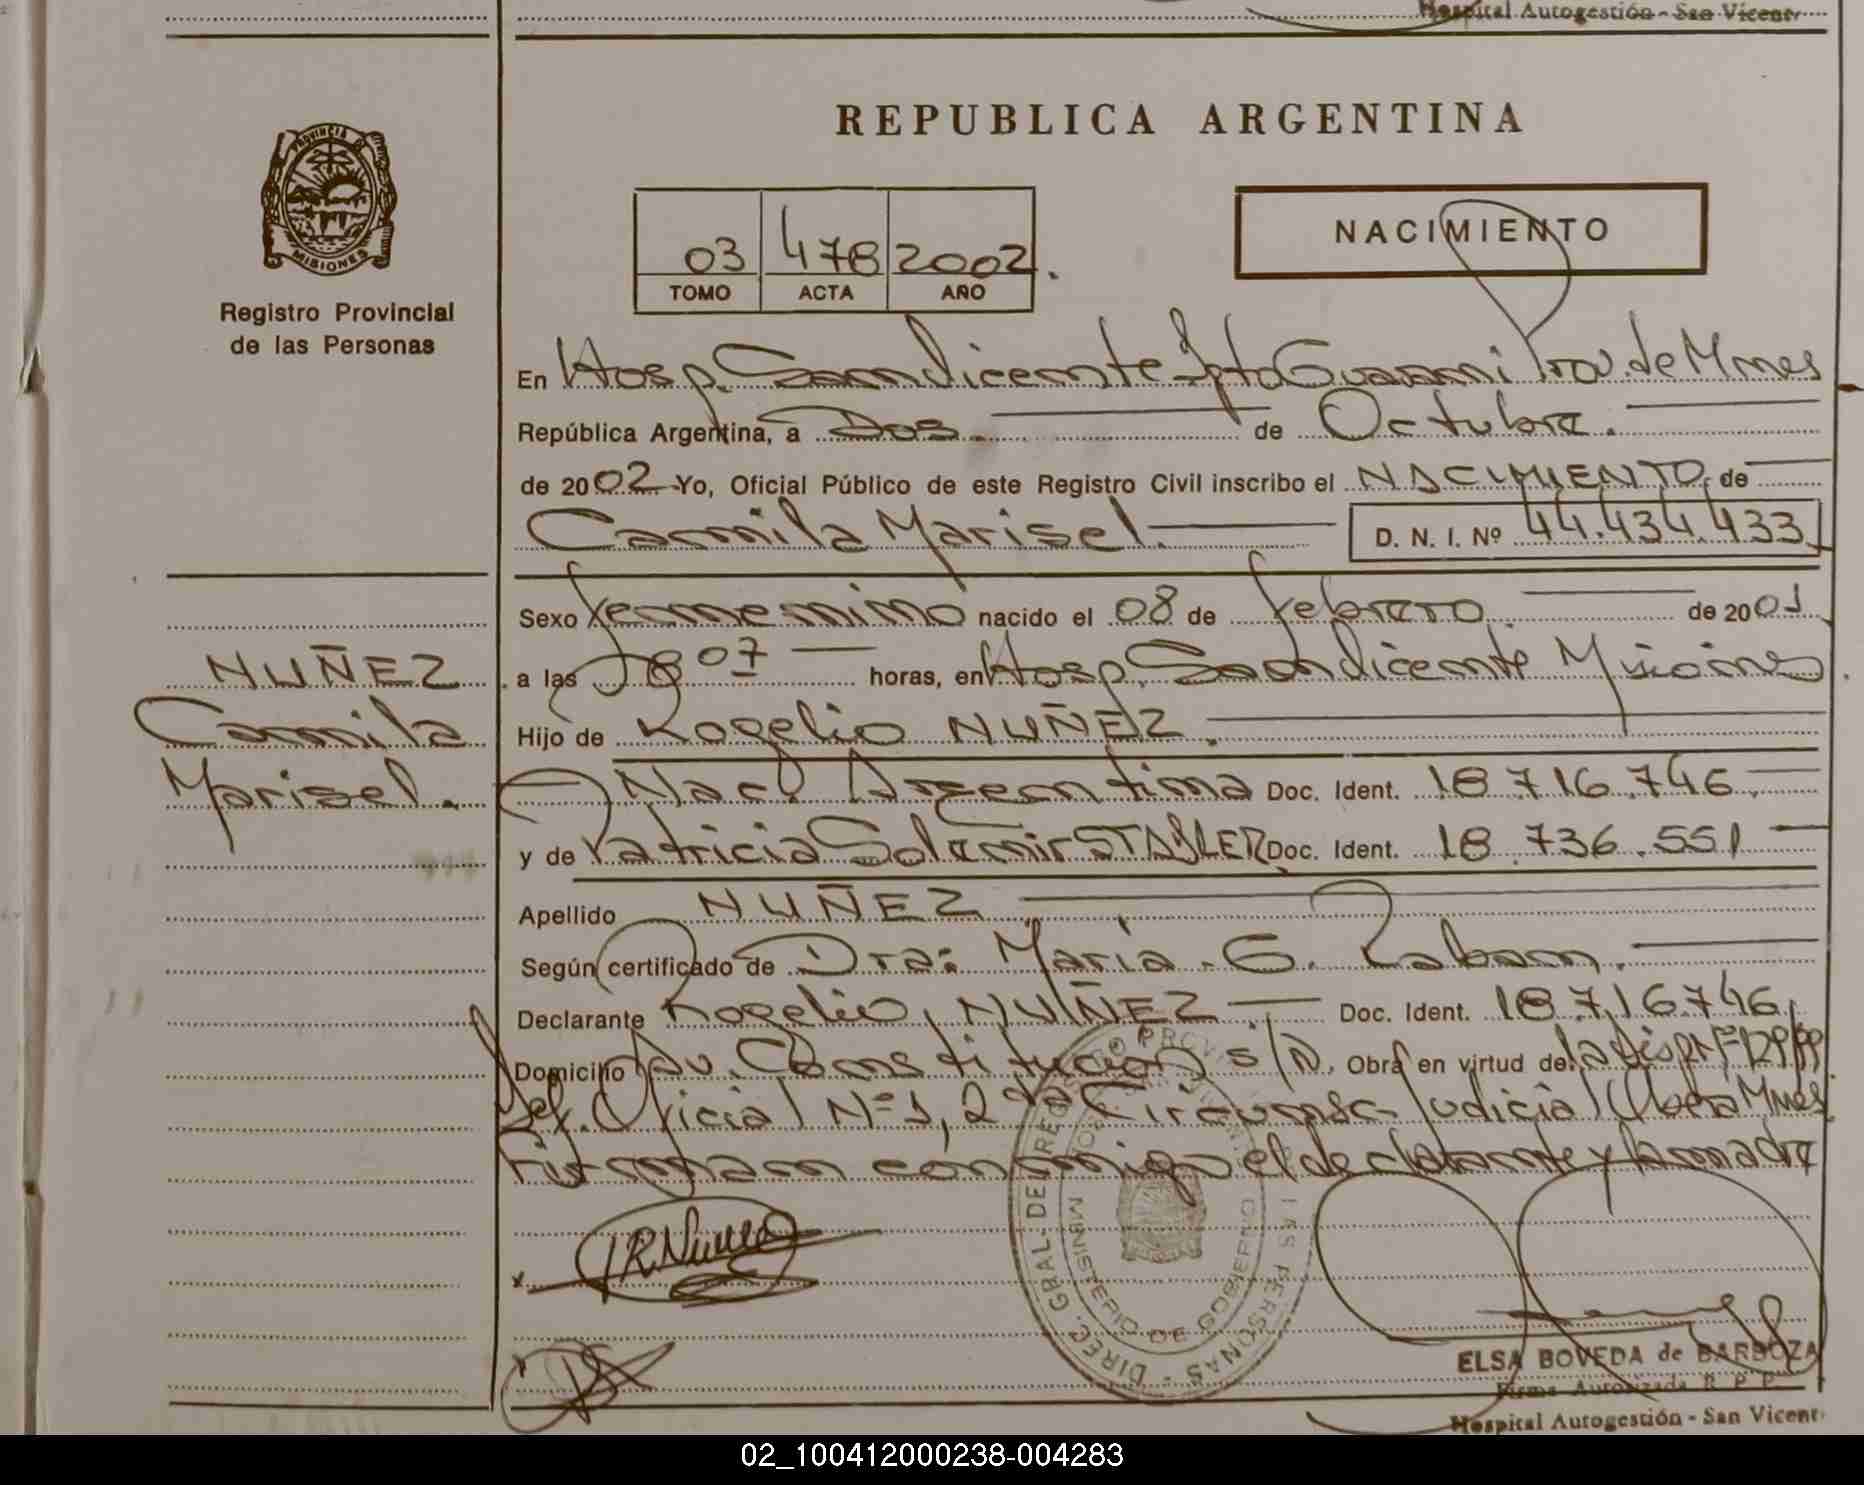 Hospital Autogestión - San Vicent
REPUBLICA ARGENTINA
PROVINCIA DE
MISIONES
Registro Provincial
de las Personas
03 478 2002.
TOMO ACTA AÑO
NACIMIENTO
En Hosp. San Vicente Dpto Guarani Prov. de Mnes
República Argentina, a Dos. de Octubre.
de 2002 Yo, Oficial Público de este Registro Civil inscribo el NACIMIENTO de
Camila Marisel. D. N. I. Nº 44.434.433
Sexo femenino nacido el 08 de febrero de 2001
NUÑEZ
Camila
Marisel.
a las 807 horas, en Hosp. San Vicente Misiones
Hijo de Rogelio NUÑEZ.
Nac. Argentina Doc. Ident. 18.716.746
y de Patricia STABLER Doc. Ident. 18.736.551
Apellido NUÑEZ
Según certificado de Dra: Maria. G. Raban.
Declarante Rogelio NUÑEZ Doc. Ident. 18.716.746
Domicilio Av. Constitucion s/n. Obra en virtud de la
Def. Oficial Nº 1, 2da Circunsc- Judicial Obera Mnes
Firman conmigo el declarante y la madre
R. Nuñez
DIREC. GRAL. DE REGISTRO PROVINCIAL DE LAS PERSONAS
MINISTERIO DE GOBIERNO
ELSA BOVEDA de BARBOZA
Firma Autorizada R. P. P.
Hospital Autogestión - San Vicent
02_100412000238-004283